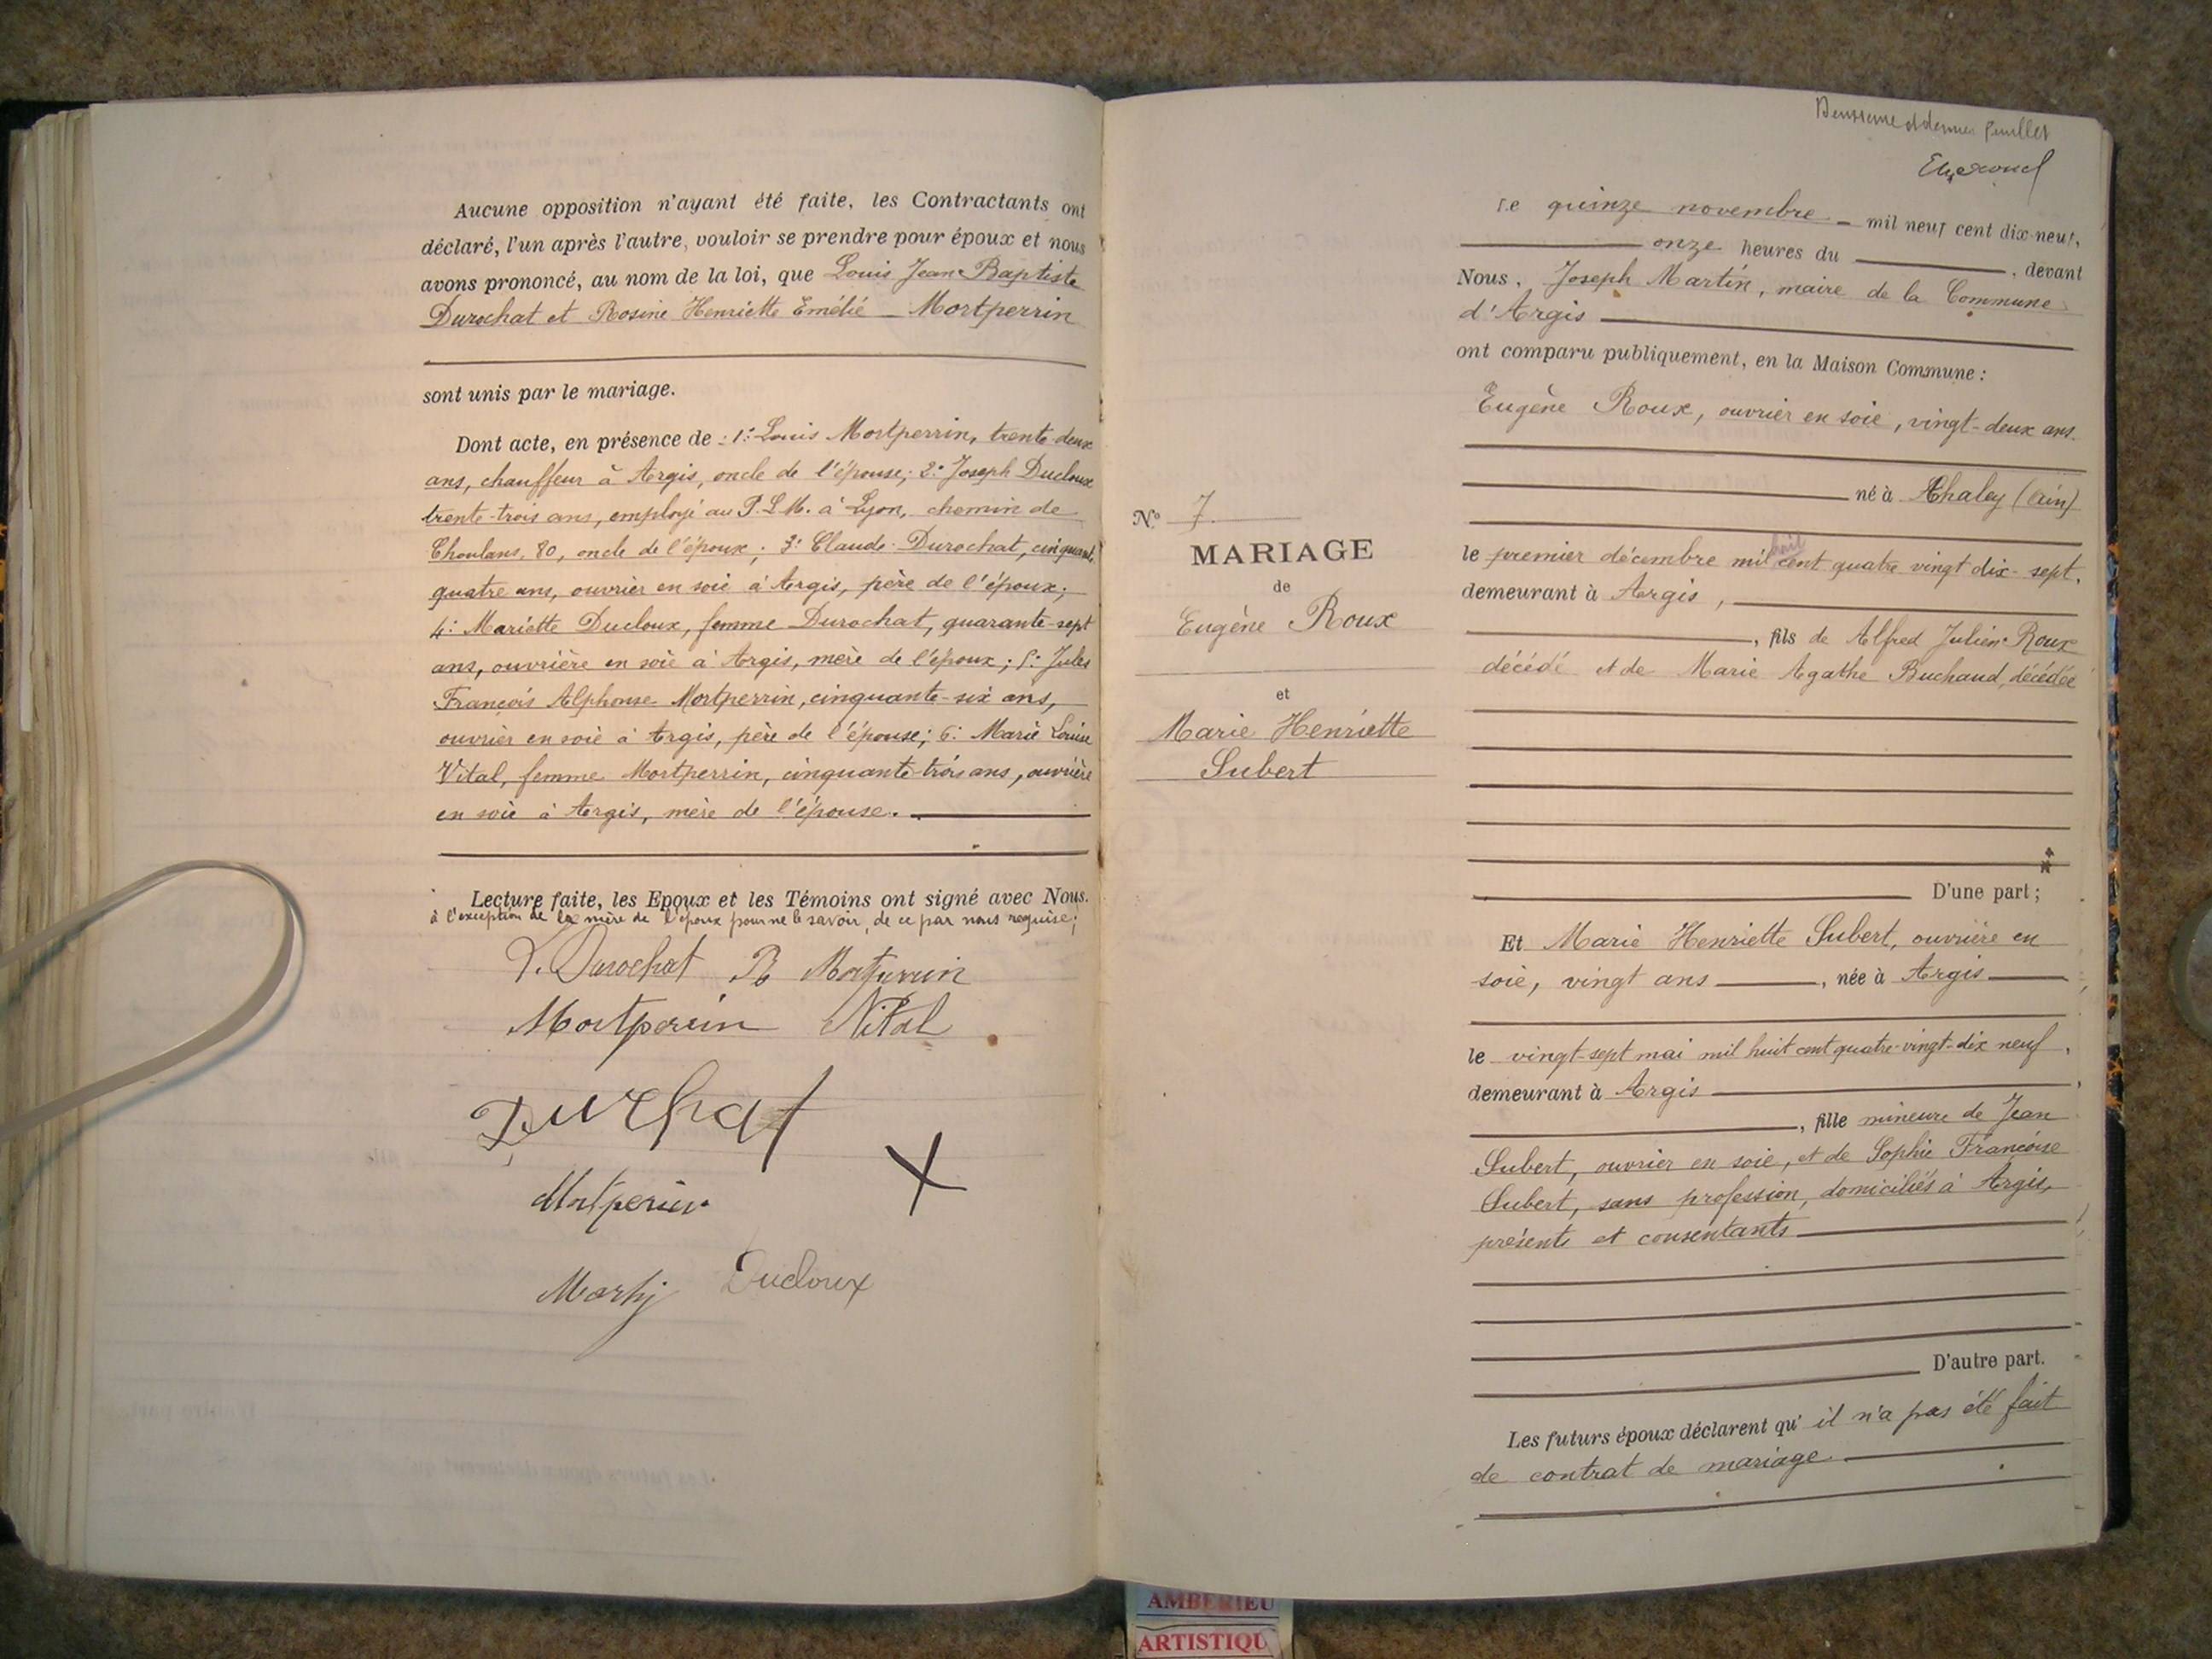 Aucune opposition n'ayant été faite, les Contractants ont
déclaré, l'un après l'autre, vouloir se prendre pour époux et nous
avons prononcé, au nom de la loi, que Louis Jean-Baptiste
Durochat et Rosine Henriette Emélie Mortperrin
sont unis par le mariage.
Dont acte, en présence de : 1° Louis Mortperrin, trente-deux
ans, chauffeur à Argis, oncle de l'épouse; 2° Joseph Ducloux
trente-trois ans, employé au P.L.M. à Lyon, chemin de
Choulans, 80, oncle de l'époux; 3° Claude Durochat, cinquante
quatre ans, ouvrier en soie à Argis, père de l'époux;
4° Mariette Ducloux, femme Durochat, quarante-sept
ans, ouvrière en soie à Argis, mère de l'époux; 5° Jules
François Alphonse Mortperrin, cinquante-six ans,
ouvrier en soie à Argis, père de l'épouse; 6° Marie Louise
Vital, femme Mortperrin, cinquante-trois ans, ouvrière
en soie à Argis, mère de l'épouse.
Lecture faite, les Epoux et les Témoins ont signé avec Nous.
à l'exception de la mère de l'époux pour ne le savoir, de ce par nous requise;
Durochat R Mortperrin
Mortperrin Vital
Durchat
X
Mortperrin
Ducloux
N° 7
MARIAGE
de
Eugène Roux
et
Marie Henriette
Subert
Deuxième et dernier feuillet
Le quinze novembre mil neuf cent dix-neuf,
onze heures du , devant
Nous, Joseph Martin, maire de la Commune
d'Argis
ont comparu publiquement, en la Maison Commune :
Eugène Roux, ouvrier en soie, vingt-deux ans.
né à Chaley (Ain)
le premier décembre mil huit cent quatre vingt dix-sept,
demeurant à Argis,
, fils de Alfred Julien Roux
décédé et de Marie Agathe Buchaud, décédée
D'une part ;
Et Marie Henriette Subert, ouvrière en
soie, vingt ans , née à Argis
le vingt-sept mai mil huit cent quatre-vingt-dix neuf,
demeurant à Argis
, fille mineure de Jean
Subert, ouvrier en soie, et de Sophie Françoise
Subert, sans profession, domiciliés à Argis,
présents et consentants
D'autre part.
Les futurs époux déclarent qu'il n'a pas été fait
de contrat de mariage.
AMBERIEU
ARTISTIQU